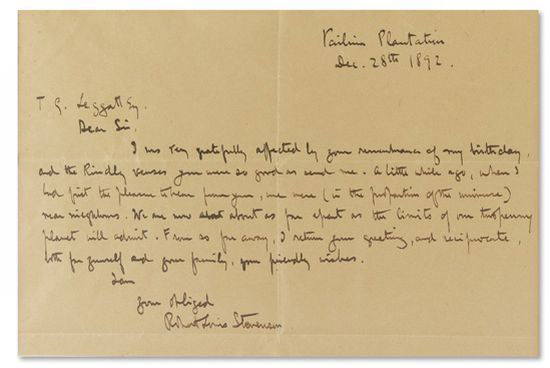 Vailima Plantation
Dec. 28th 1892.
T. G. Leggatt Esq.
Dear Sir,
I was very gratefully affected by your remembrance of my birthday,
and the kindly verses you were so good as send me. A little while ago, when I
had first the pleasure to hear from you, we were (in the proportion of the universe)
near neighbours. We are now about as far apart as the limits of our twopenny
planet will admit. From so far away, I return your greeting, and reciprocate,
both for yourself and your family, your friendly wishes.
I am
your obliged
Robert Louis Stevenson